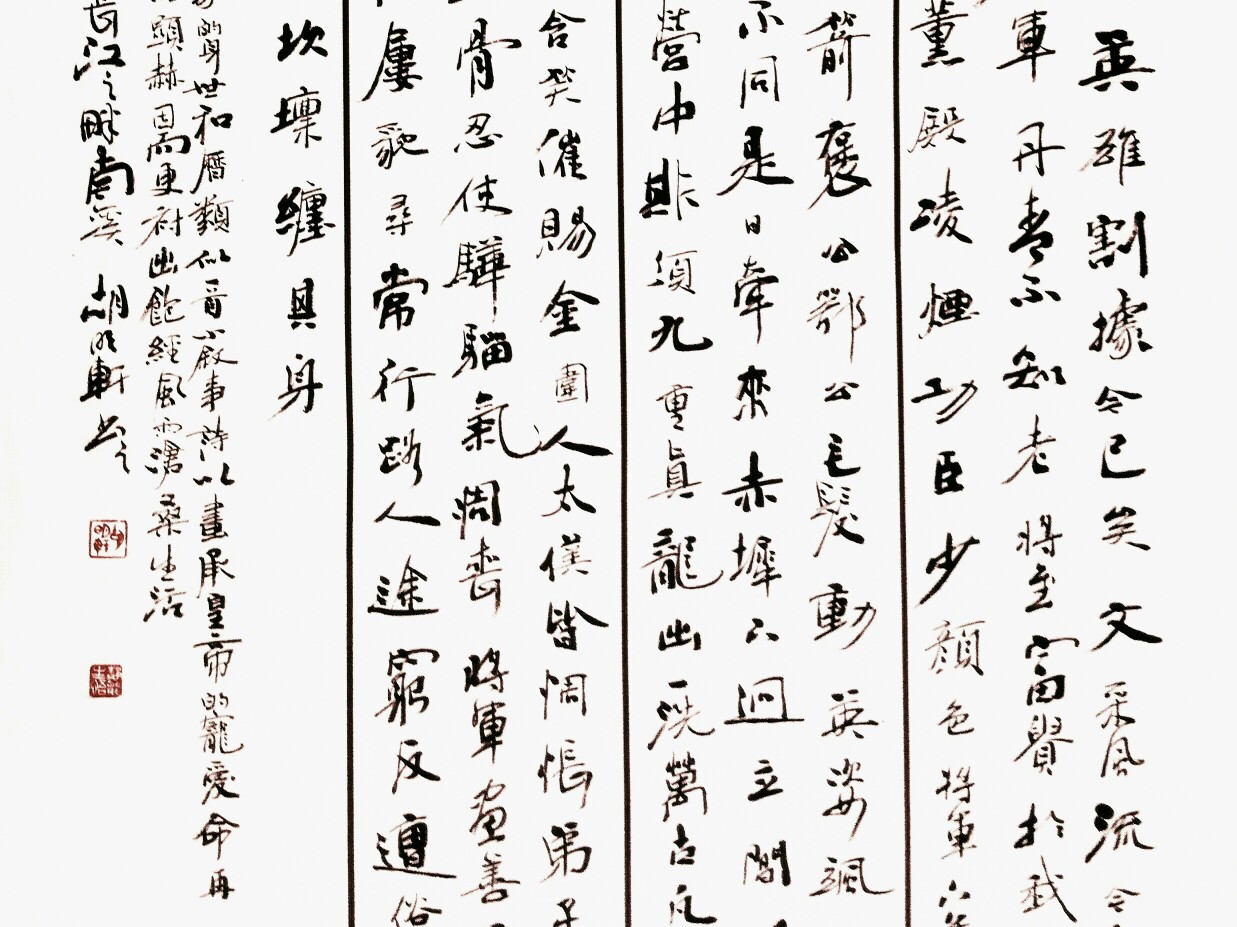 英雄割據今已矣文采風流今
軍丹青不知老將至富貴於我
薰殿凌煙功臣少顏色將軍下
箭褒公鄂公毛髮動英姿颯
不同是日牽來赤墀下迥立閶
營中斯須九重真龍出一洗萬古凡
含笑催賜金圉人太僕皆惆悵弟子
骨忍使驊騮氣凋喪將軍畫善
屢貌尋常行路人途窮反遭俗
坎壈纏其身
的身世和曆類似敘事詩以畫承皇帝的寵愛命再
顯赫因而更襯出飽經風雨滄桑生活
長江之畔南溪 胡明軒書之